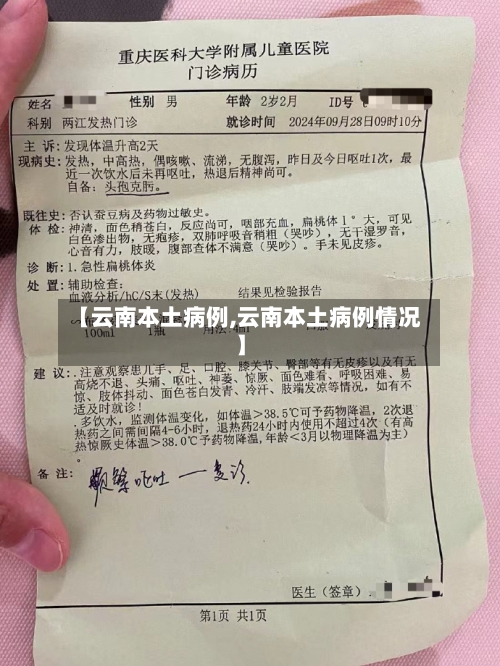 重庆医科大学附属儿童医院
门诊病历
姓名 性别 男 年龄 2岁2月 ID号
科别 两江发热门诊 就诊时间 2024年09月28日09时10分
主 诉: 发现体温升高2天
现病史: 发热, 中高热, 偶咳嗽、流涕, 无腹泻, 昨日及今日呕吐1次, 最
近一次饮水后未再呕吐, 热退后精神尚可。
自备: 头孢克肟。
既往史: 否认蚕豆病及药物过敏史。
体 检: 神清, 面色稍苍白, 反应尚可, 咽部充血, 扁桃体1°大, 可见
白色渗出物, 无疱疹, 双肺呼吸音稍粗（哭吵）, 无干湿罗音,
心音有力, 肢暖, 腹部查体不满意（哭吵）。手未见皮疹。
诊 断: 1.急性扁桃体炎
处 置: 辅助检查:
血液分析/hC/S末(发热) 结果见检验报告
【云南本土病例,云南本土病例情况
】
100ml 1瓶
建 议: .注意观察患儿手、足、口腔、膝关节、臀部等有无皮疹以及有无
高烧不退、头痛、呕吐、神萎、惊厥、面色难看、呼吸困难、易
惊、肢体抖动、面色苍白发青、冷汗、肢端发凉等情况, 如有不
适及时就诊!
.多饮水, 监测体温变化, 如体温>38.5℃可予药物降温, 2次退
热药之间需间隔4-6小时, 退热药24小时内使用不超过4次（有高
热惊厥史体温>38.0℃予药物降温,年龄<3月以物理降温为主）
。
备 注: 频繁呕吐一复诊.
医生（签章）.
第1页 共1页